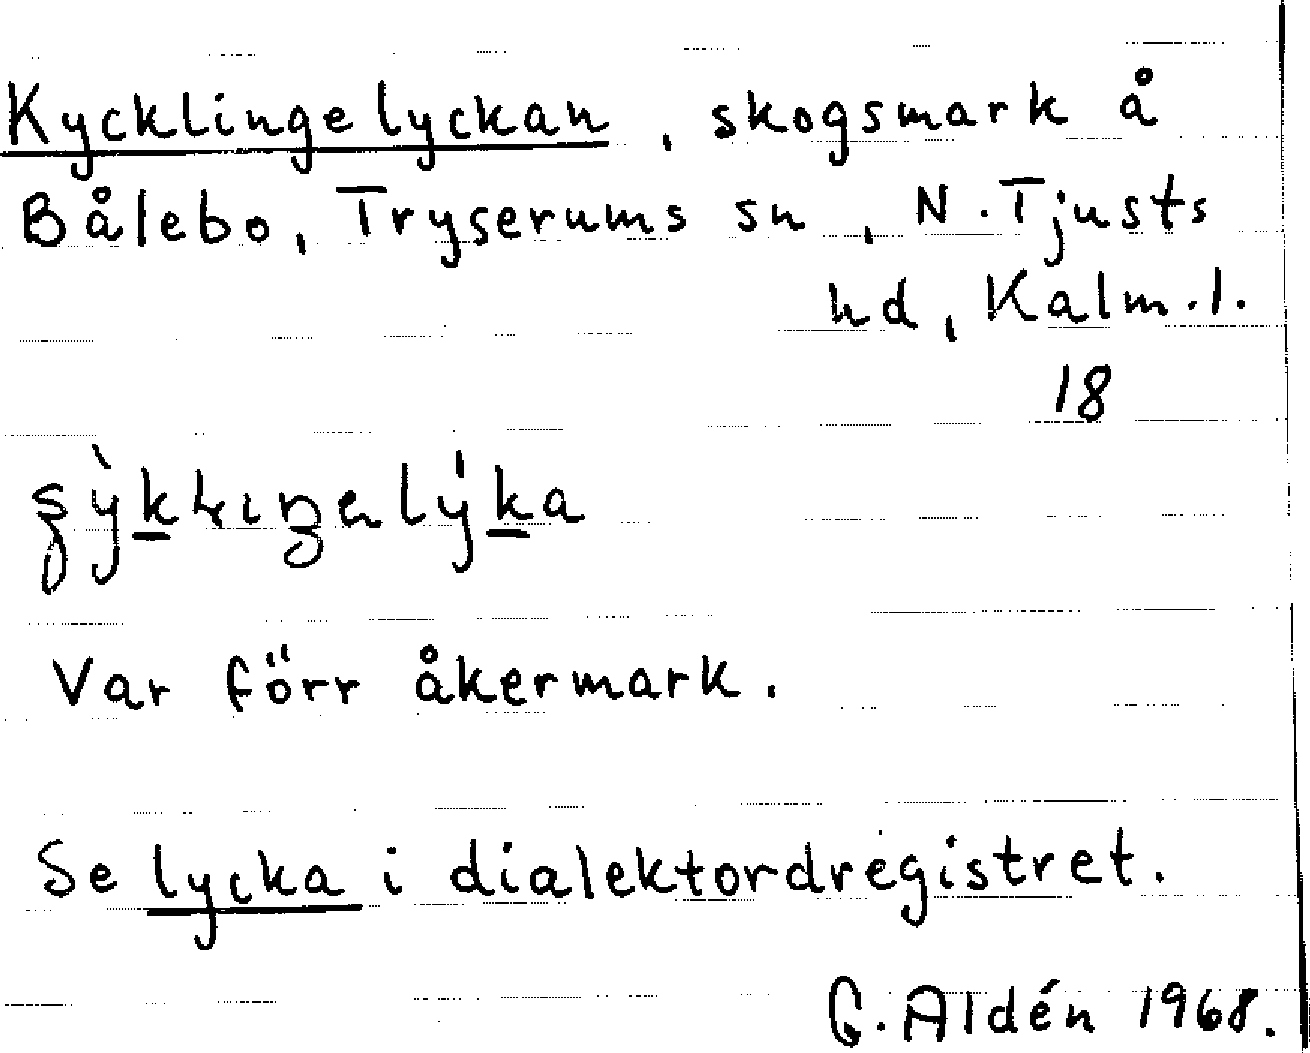 Kycklingelyckan, skogsmark å
Bålebo, Tryserums sn, N. Tjusts
hd, Kalm. l.
18
Var förr åkermark.
Se lycka i dialektordregistret.
G. Aldén 1968.